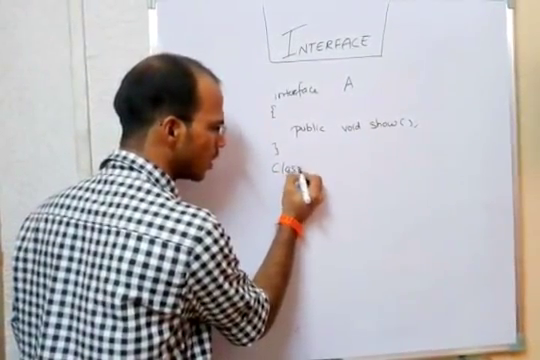 INTERFACE
interface A
{
public void show();
}
Class